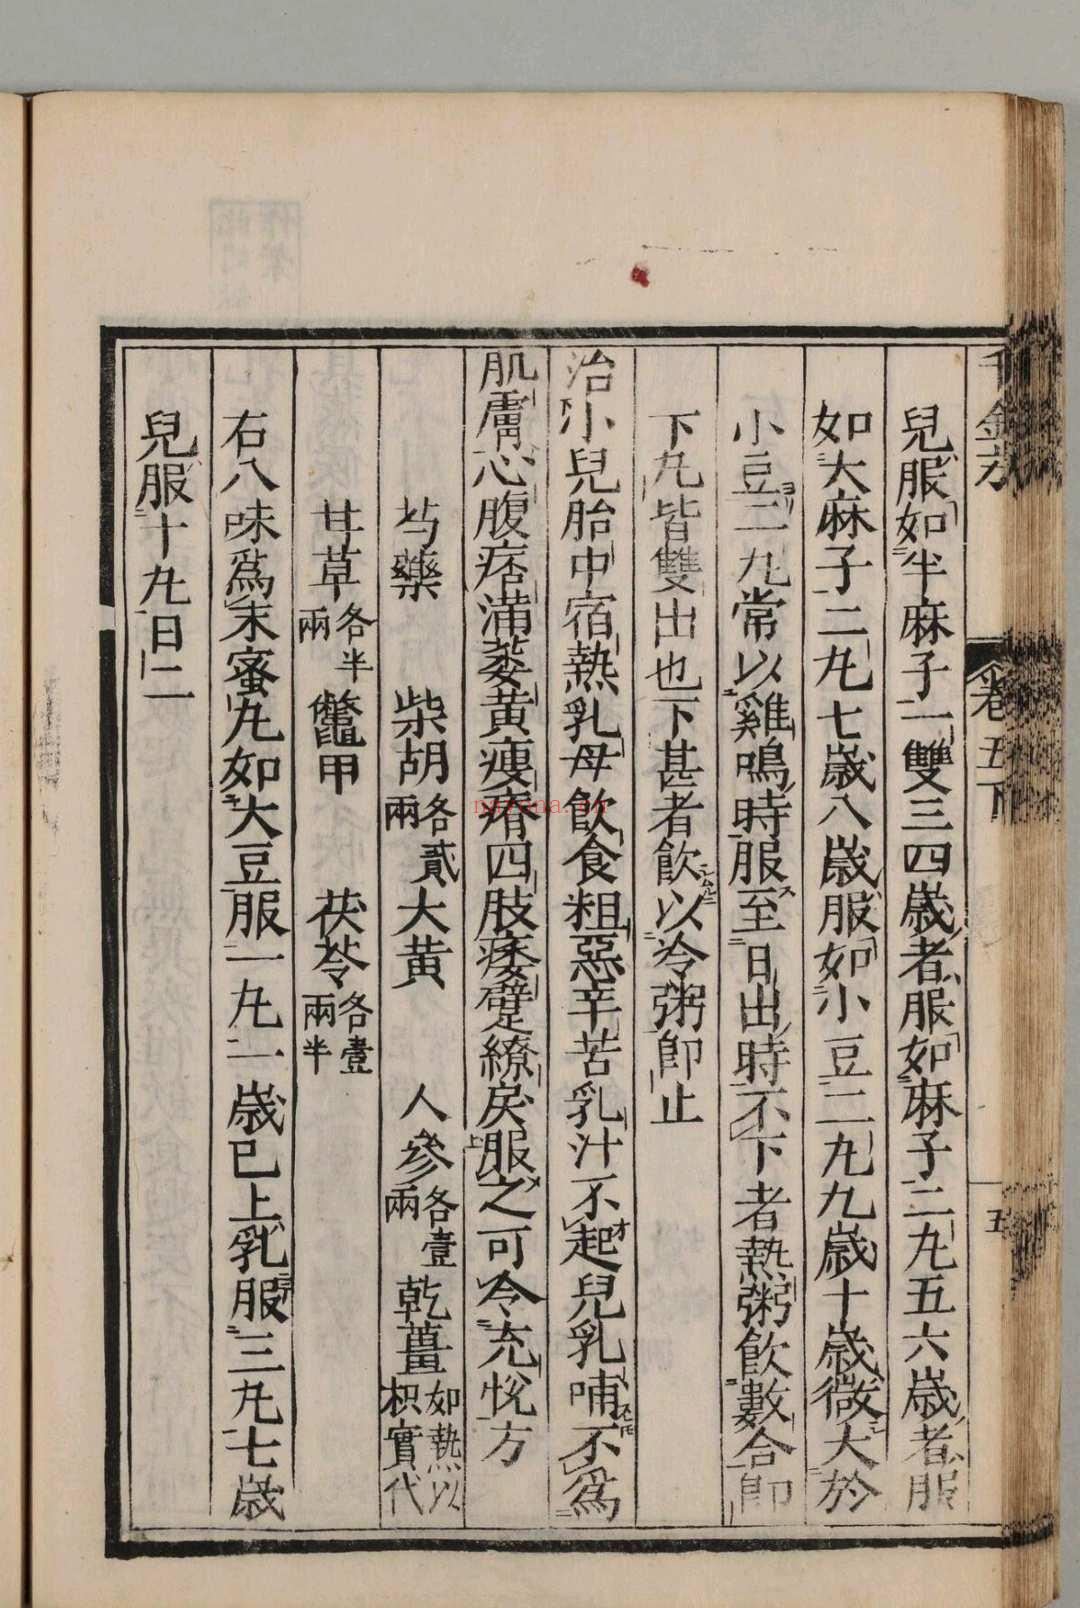 千金方 卷五下 五
兒服如半麻子一雙三四歲者服如麻子二丸五六歲者服
如大麻子二丸七歲八歲服如小豆二丸九歲十歲微大於
小豆二丸常以雞鳴時服至日出時不下者熱粥飲數合即
下丸皆雙出也下甚者飲以冷粥即止
治小兒胎中宿熱乳母飲食粗惡辛苦乳汁不起兒乳哺不爲
肌膚心腹痞滿萎黃瘦瘠四肢痿躄繚戾服之可令充悅方
芍藥 柴胡各貳兩 大黃 人參各壹兩 乾薑如熱以枳實代
甘草各半兩 鼈甲 茯苓各壹兩半
右八味爲末蜜丸如大豆服一丸一歲已上乳服三丸七歲
兒服十丸日二